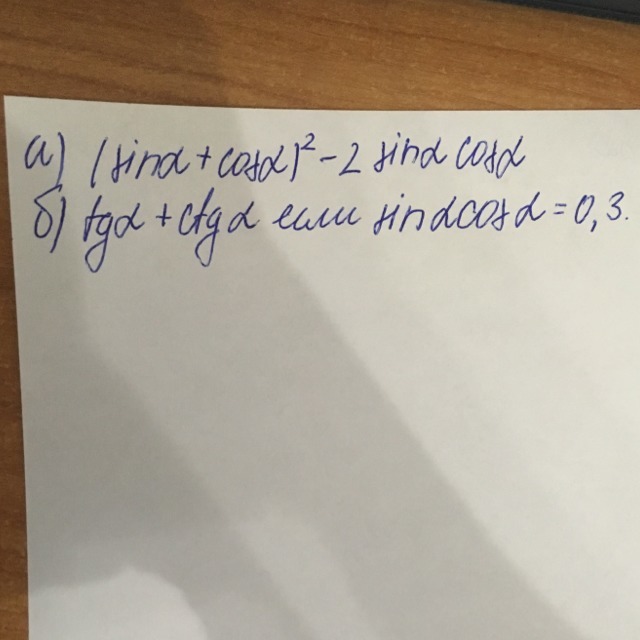 а) (sinα + cosα)² - 2 sinα cosα
б) tgα + ctgα если sinα cosα = 0,3.